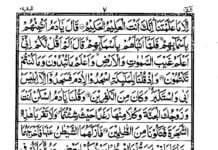 ۷
اِلَّا مَا عَلَّمْتَنَا اِنَّكَ اَنْتَ الْعَلِيْمُ الْحَكِيْمُ قَالَ يٰٓاٰدَمُ اَنْۢبِئْهُمْ
بِاَسْمَآئِهِمْ فَلَمَّآ اَنْۢبَاَهُمْ بِاَسْمَآئِهِمْ قَالَ اَلَمْ اَقُلْ لَّكُمْ اِنِّيْٓ
اَعْلَمُ غَيْبَ السَّمٰوٰتِ وَالْاَرْضِ وَاَعْلَمُ مَا تُبْدُوْنَ وَمَا كُنْتُمْ
تَكْتُمُوْنَ وَاِذْ قُلْنَا لِلْمَلٰٓئِكَةِ اسْجُدُوْا لِاٰدَمَ فَسَجَدُوْٓا اِلَّآ اِبْلِيْسَ
اَبٰى وَاسْتَكْبَرَ وَكَانَ مِنَ الْكٰفِرِيْنَ وَقُلْنَا يٰٓاٰدَمُ اسْكُنْ اَنْتَ
وَزَوْجُكَ الْجَنَّةَ وَكُلَا مِنْهَا رَغَدًا حَيْثُ شِئْتُمَا وَلَا تَقْرَبَا هٰذِهِ
الشَّجَرَةَ فَتَكُوْنَا مِنَ الظّٰلِمِيْنَ فَاَزَلَّهُمَا الشَّيْطٰنُ عَنْهَا فَاَخْرَجَهُمَا